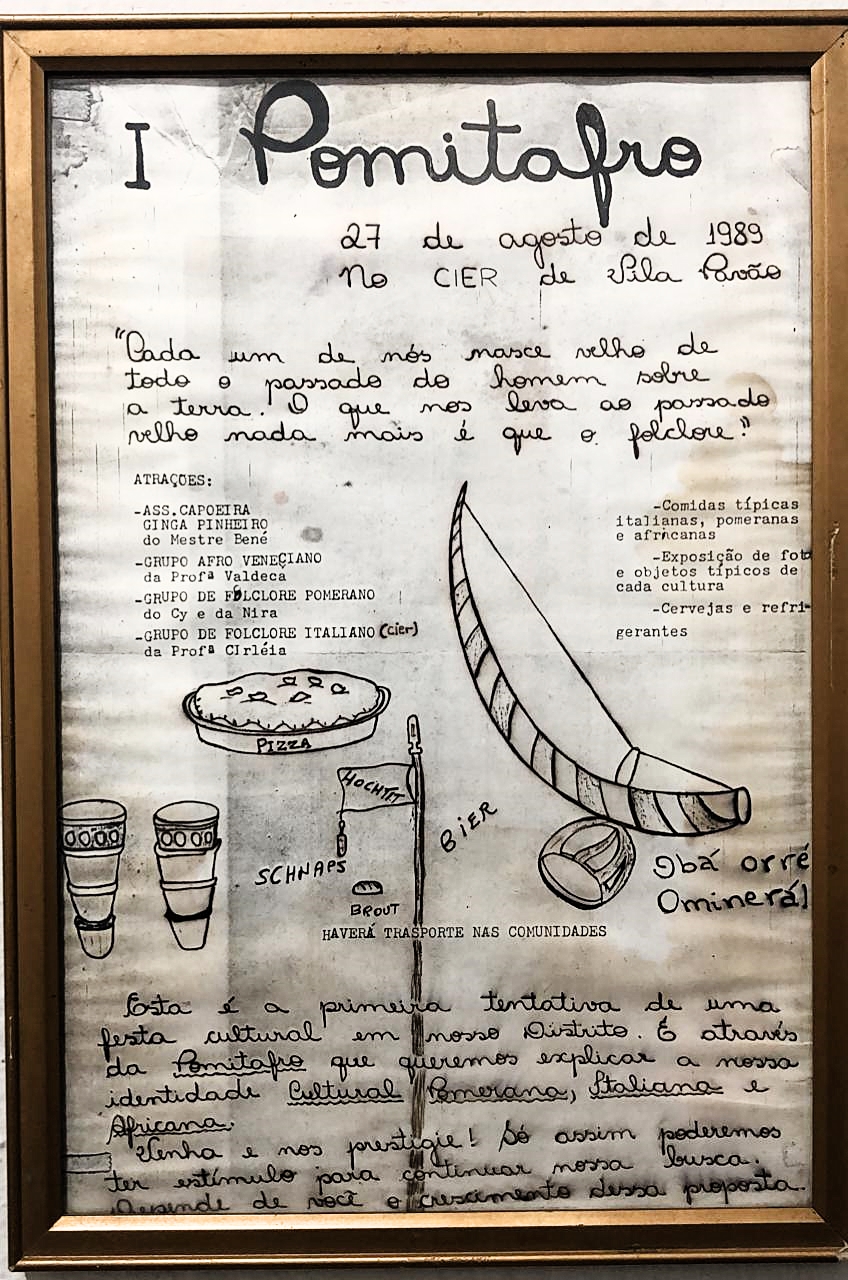 I Pomitafro
27 de agosto de 1989
No CIER de Vila Pavão
"Cada um de nós nasce velho de
todo o passado do homem sobre
a terra. O que nos leva ao passado
velho nada mais é que o folclore."
ATRAÇÕES:
-ASS.CAPOEIRA
GINGA PINHEIRO
do Mestre Bené
-GRUPO AFRO VENEÇIANO
da Profª Valdeca
-GRUPO DE FOLCLORE POMERANO
do Cy e da Nira
-GRUPO DE FOLCLORE ITALIANO (cier)
da Profª CIrléia
-Comidas típicas
italianas, pomeranas
e africanas
-Exposição de fot
e objetos típicos de
cada cultura
-Cervejas e refri-
gerantes
PIZZA
HOCHTIT
BIER
SCHNAPS
BROUT
Igbá orré
Ominerá!
HAVERÁ TRASPORTE NAS COMUNIDADES
Esta é a primeira tentativa de uma
festa cultural em nosso Distrito. É através
da Pomitafro que queremos explicar a nossa
identidade Cultural Pomerana, Italiana e
Africana.
Venha e nos prestigie! Só assim poderemos
ter estímulo para continuar nossa busca.
Depende de você o crescimento dessa proposta.